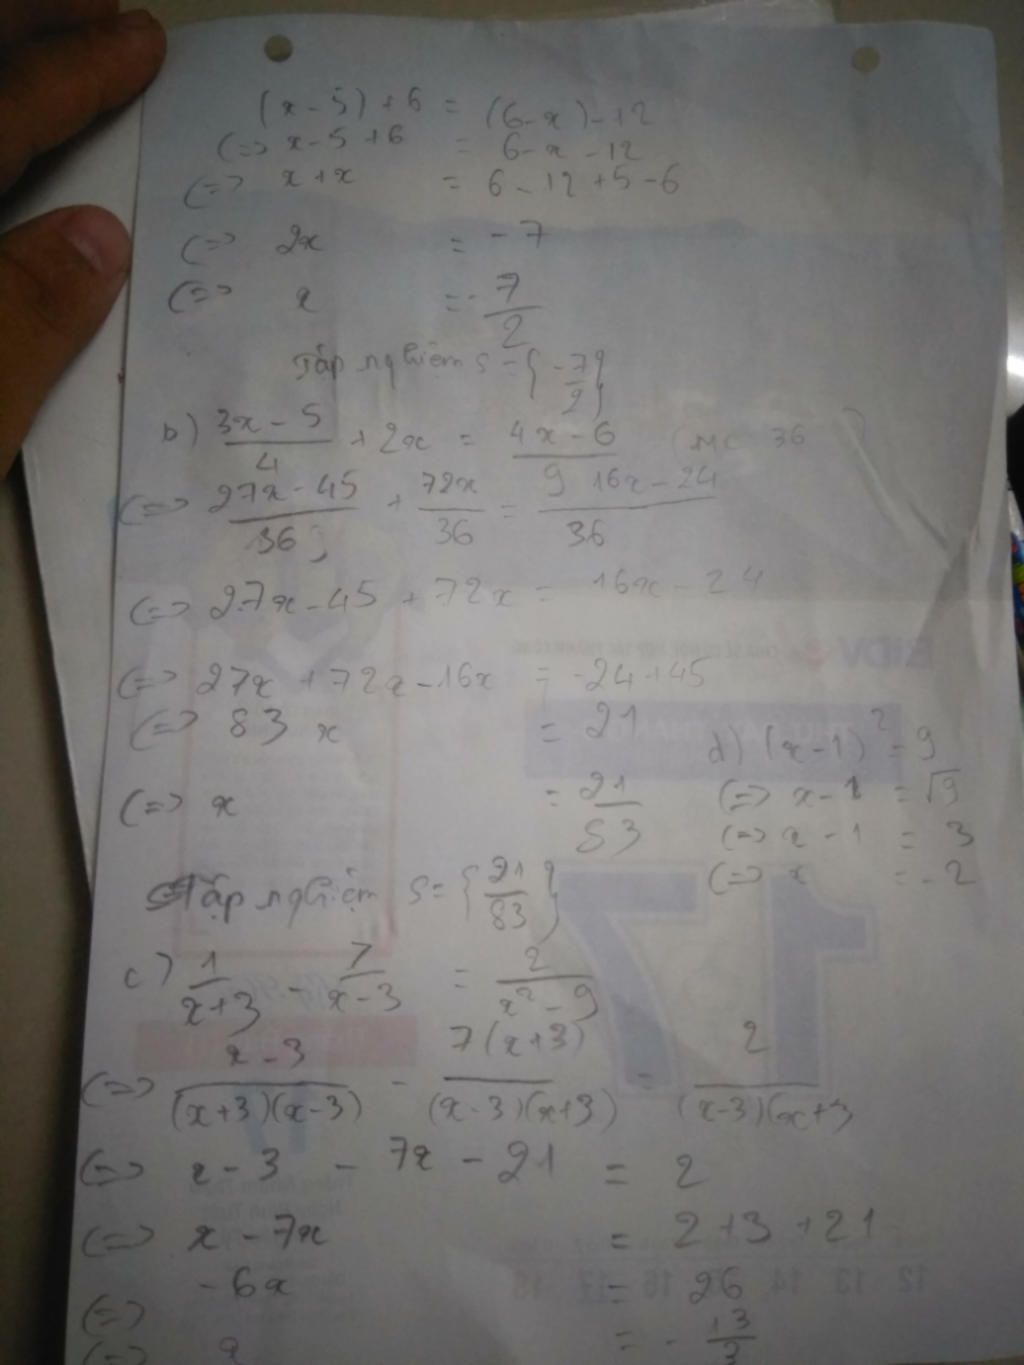 (x - 5) + 6 = (6 - x) - 12
(=) x - 5 + 6 = 6 - x - 12
(=) x + x = 6 - 12 + 5 - 6
(=) 2x = - 7
(=) x = - 7/2
Tập nghiệm S = { - 7/2 }
b) 3x - 5 / 4 + 2x = 4x - 6 / 9 (MC 36)
(=) 27x - 45 / 36 + 72x / 36 = 16x - 24 / 36
(=) 27x - 45 + 72x = 16x - 24
(=) 27x + 72x - 16x = -24 + 45
(=) 83 x = 21
(=) x = 21/83
Tập nghiệm S = { 21/83 }
d) (x - 1)² = 9
(=) x - 1 = √9
(=) x - 1 = 3
(=) x = - 2
c) 1 / x + 3 - 7 / x - 3 = 2 / x² - 9
(=) x - 3 / (x + 3)(x - 3) - 7(x + 3) / (x - 3)(x + 3) = 2 / (x - 3)(x + 3
(=) x - 3 - 7x - 21 = 2
(=) x - 7x = 2 + 3 + 21
(=) - 6x = 26
(=) x = - 13/3
BIDV
17
12 13 14 16 17 18